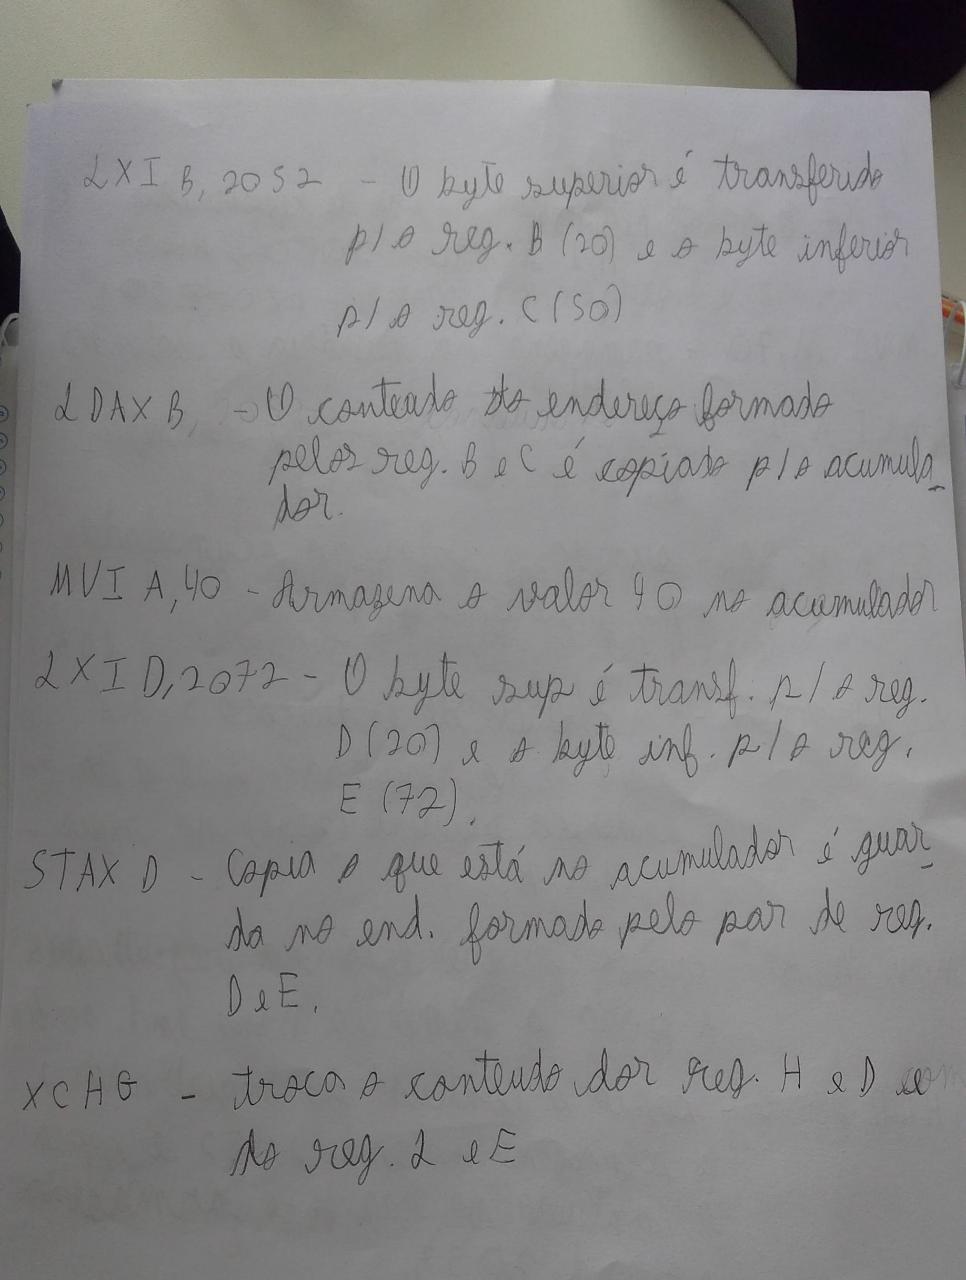 LXI B, 2052 - O byte superior é transferido
p/ o reg. B (20) e o byte inferior
p/ o reg. C (50)
LDAX B, - O conteudo do endereço formado
pelos reg. B e C é copiado p/ o acumula_
dor.
MVI A, 40 - Armazena o valor 40 no acumulador
LXI D, 2072 - O byte sup é transf. p/ o reg.
D (20) e o byte inf. p/ o reg.
E (72).
STAX D - Copia o que está no acumulador é guar_
da no end. formado pelo par de reg.
D e E.
XCHG - troca o conteudo dos reg. H e D e
do reg. L e E